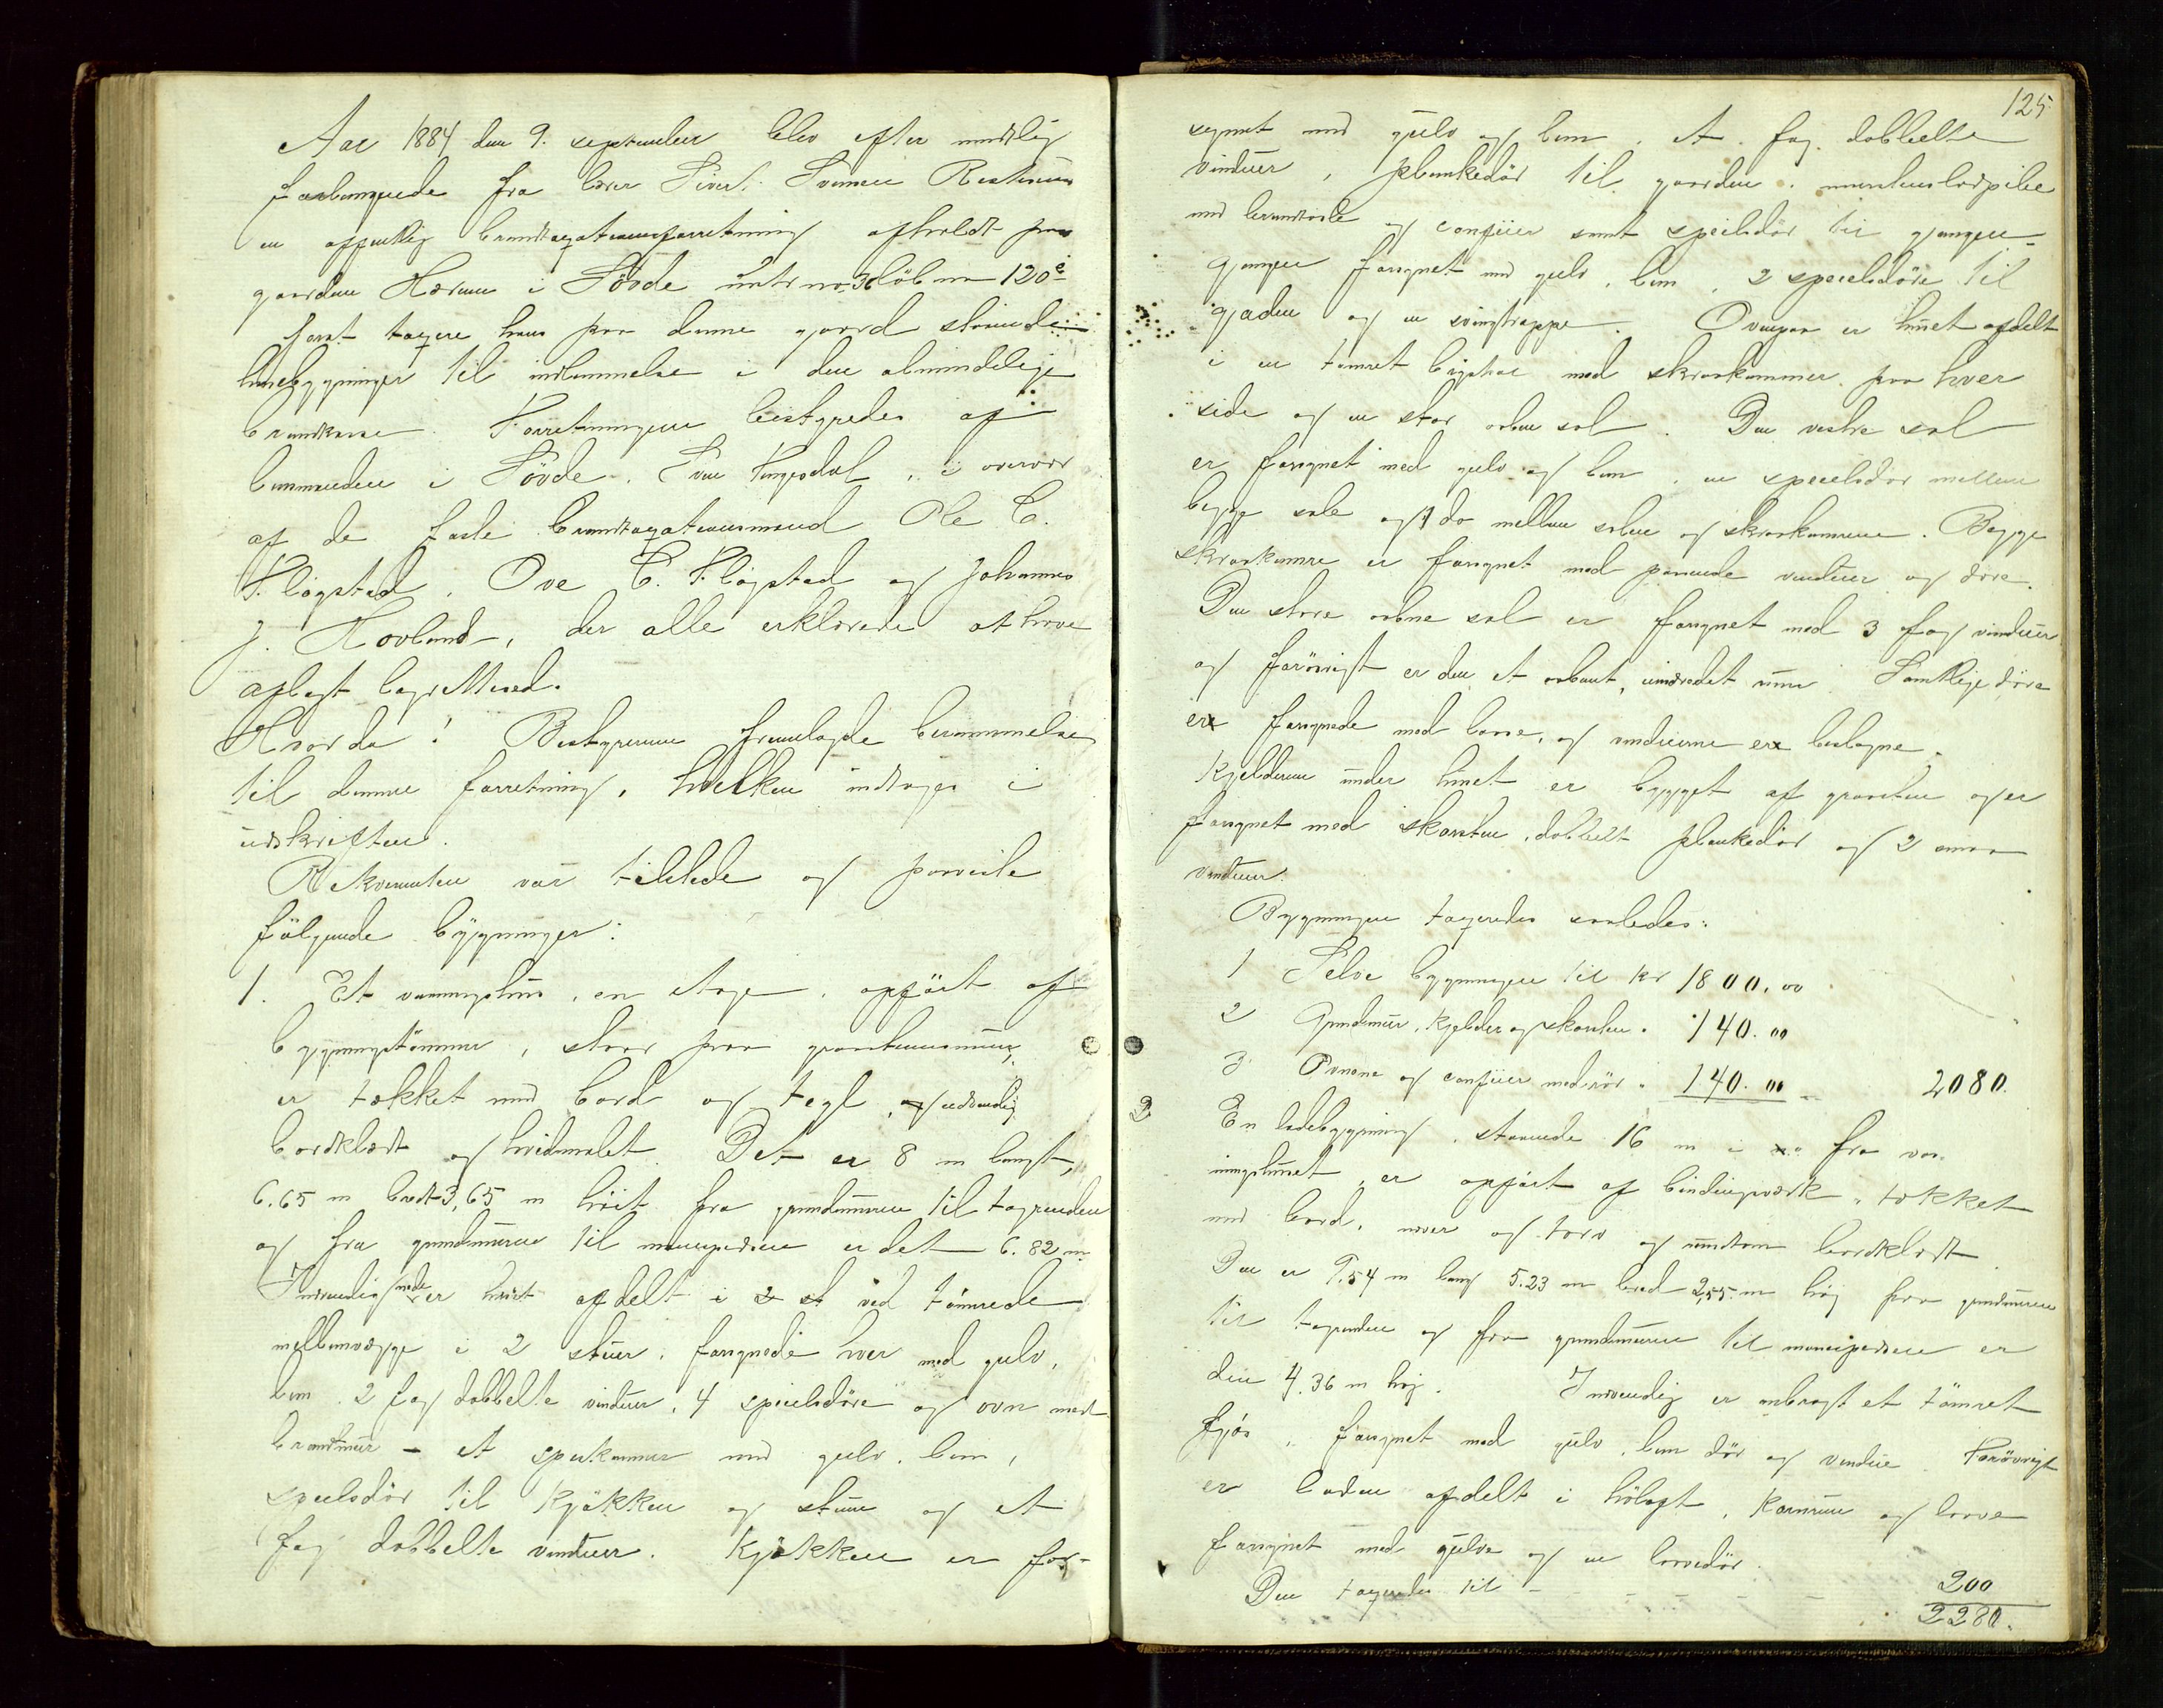 Aar 1884 den 9. september blev efter mundtlig
forlangende fra lærer Sivert Svensen
en offentlig brandtaxationsforretning afholdt paa
gaarden Hærem i Søvde matr no 36 løb no 120 c
for at taxere hans paa denne gaard staaende
husebygninger til indlemmelse i den almindelige
brandkasse. Forretningen bestyredes af
lensmanden i Søvde, Sven Tengesdal, i overvær
af de faste brandtaxationsmænd Ole C.
Fløgstad, Ove C. Fløgstad og Johannes
J. Hovland, der alle erklærede at have
aflagt lagrettesed.
Hvorda! Bestyreren fremlagde berammelse
til denne forretning, hvilken indtages i
udskriften.
Rekvirenten var tilstede og paaviste
følgende bygninger:
1. Et vaaningshus, en etage, opført af
bygningstømmer, staar paa graastensmur,
er tækket med bord og tegl, og udvendig
bordklædt og hvidmalet. Det er 8 m langt,
6.65 m bredt 3,65 m høit fra grundmuren til tagrenden
og fra grundmuren til mønepidsen er det 6.82 m
Indvendig nede er huset afdelt i 2 st ved tømrede
mellemvægge i 2 stuer, forsynede hver med gulv,
lem, 2 fag dobbelte vinduer, 4 speilsdøre og ovn med
brandmur - et spiskammer med gulv, lem,
speilsdør til kjøkken og stuen og et
fag dobbelte vinduer. Kjøkken er for-
125
synet med gulv og lem, et fag dobbelte
vinduer, plankedør til gaarden, murstenslorpibe
med brandtavle og comfuir samt speilsdør til gangen -
gangen forsynet med gulv, lem, 2 speilsdøre til
gaden og en svingtrappe. Ovenpaa er huset afdelt
i en tømret vestsal med skraakammer paa hver
side og en stor aaben sal. Den vestre sal
er forsynet med gulv og lem, en speilsdør mellem
begge sale og 1 do mellem salen og skraakamrene. Begge
skraakamre er forsynet med passende vinduer og døre.
Den store aabne sal er forsynet med 3 fag vinduer
og forøvrigt er den et aabent, uindredet rum. Samtlige døre
er forsynede med laase, og vinduerne er beslagne.
Kjelderen under huset er bygget af graasten og er
forsynet med skorsten, dobbelt plankedør og 2 smaa
vinduer.
Bygningen taxeredes saaledes:
1 Selve bygningen til kr 1800.00
2 Grundmur, kjelder og skorsten " 140.00
3 Ovnene og comfuir med rør " 140.00 2080.
2 En ladebygning, staaende 16 m i fra vaa-
ningshuset, er opført af bindingsværk, tækket
med bord, næver og torv og rundtom bordklædt
Den er 9.54 m lang 5.23 m bred 2,55 m høj fra grundmuren
til tagrenden og fra grundmuren til mønepidsen er
den 4.36 m høj. Indvendig er anbragt et tømret
fjøs, forsynet med gulv, lem dør og vindue. Forøvrigt
er laden afdelt i høloft, kornrum og laave
forsynet med gulve og en laavedør.
Den taxeredes til - - - - - 200
2280.